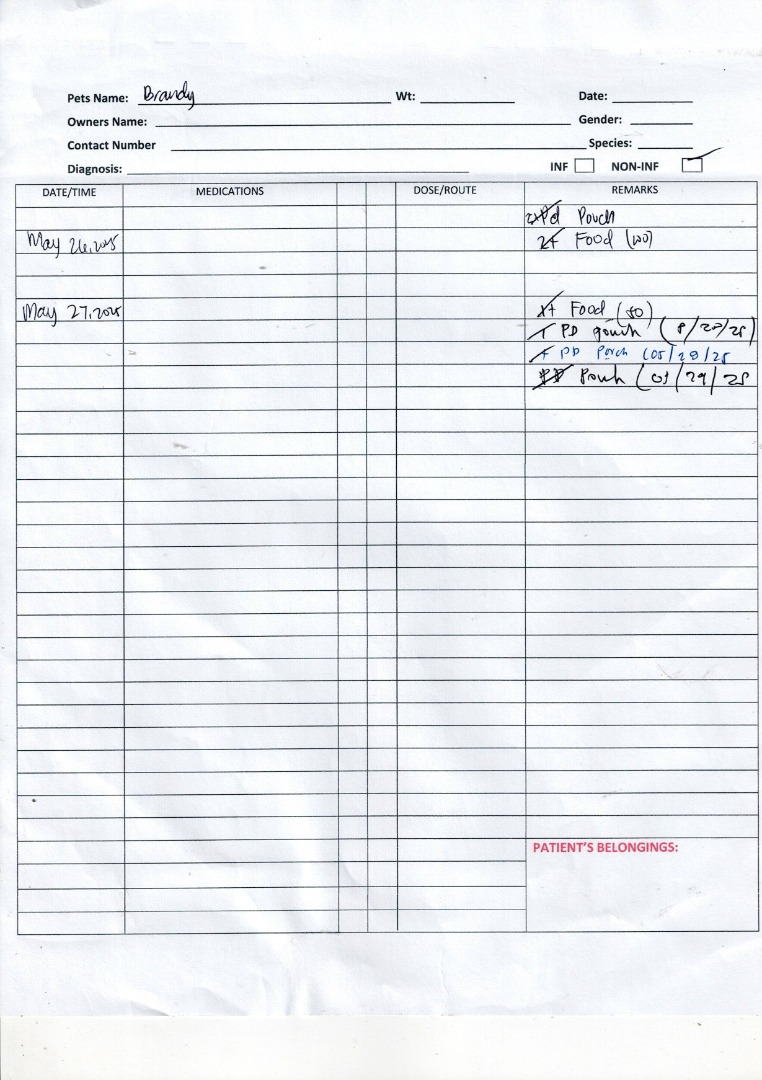 Pets Name: Brandy Wt: Date:
Owners Name: Gender:
Contact Number Species:
Diagnosis: INF NON-INF
DATE/TIME MEDICATIONS DOSE/ROUTE REMARKS
Pd Pouch
May 26, 2025 Food
May 27, 2025 Food (80)
PD pouch
PD Pouch (05/28/25
Pouch (05/29/25
PATIENT'S BELONGINGS: